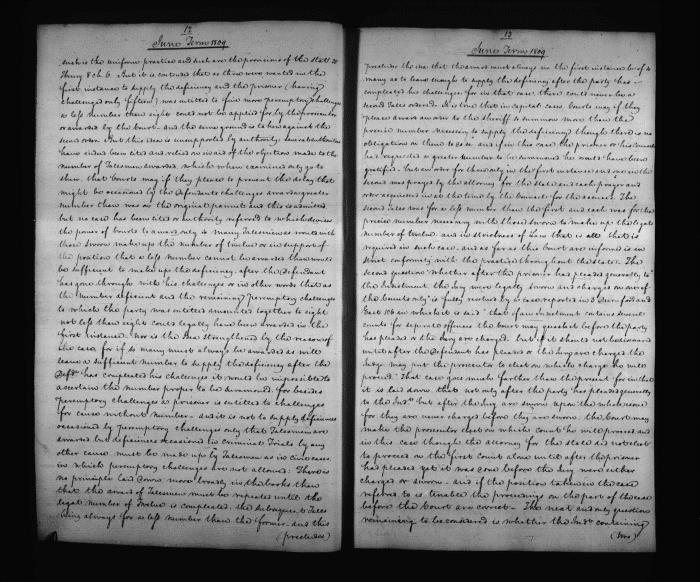 12
June Term 1809
such is the uniform practice and such are the provisions of the stat 35
Henry 8 ch 6. But it is contended that as three were wanted in the
first instance to supply the deficiency and the prisoner (having
challenged only fifteen) was entitled to five more peremptory challenges
a less number than eight could not be applied for by the prosecutor
or awarded by the court and the same ground is taken against the
second order. But this idea is unsupported by authority. Several authorities
have indeed been cited and relied on in aid of the objection made to the
number of Talesmen awarded, which when examined only go to
shew that courts may if they please to prevent the delay that
might be occasioned by the defendants challenges award a greater
number than was on the original pannel and this is admitted
but no case has been cited or authority referred to which denies
the power of courts to award only so many Talesmen as would with
those sworn make up the number of twelve or in support of
the position that a less number cannot be awarded than would
be sufficient to make up the deficiency after the defendant
has gone through with his challenges or in other words that as
the number deficient and the remaining peremptory challenges
to which the party was entitled amounted together to eight
not less than eight could legally have been awarded in the
first instance. Nor is the idea strengthened by the reason of
the case, for if so many must always be awarded as will
leave a sufficient number to supply the deficiency after the
Defdt has completed his challenges it would be impossible to
ascertain the number proper to be demanded, for besides
peremptory challenges a prisoner is entitled to challenges
for cause without number. And it is not to supply deficiencies
occasioned by peremptory challenges only that Talesmen are
awarded but deficiencies occasioned in criminal Trials by any
other cause must be made up by Talesmen as in civil cases
in which peremptory challenges are not allowed. There is
no principle laid down more broadly in the books than
that the award of Talesmen must be repeated until the
legal number of twelve is completed, the subsequent Tales
being always for a less number than the former and this
(precludes)
13
June Term 1809
precludes the idea that the award must always in the first instance be of so
many as to leave enough to supply the deficiency after the party has
completed his challenges for in that case there could never be a
second Tales ordered. It is true that in capital cases courts may if they
please award an order to the sheriff to summon more than the
precise number necessary to supply the deficiency though there is no
obligation on them to do so and if in this case the prisoner or his Counsel
had requested a greater number to be summoned he would have been
gratified. but an order for three only in the first instance and two in the
second was prayed by the attorney for the state and each prayer and
order acquiesced in at the time by the Counsel for the accused. The
second Tales was for a less number than the first and each was for the
precise number necessary with those sworn to make up the legal
number of twelve, and in strictness of law that is all that is
required in such case, and as far as this court are informed is in
strict conformity with the practice throughout the state. The
second question "whether after the prisoner has pleaded generally to
the Indictment, the Jury were legally sworn and charged on one of
the counts only" is fully resolved by a case reported in 3 Durnford and
East 106 in which it is said "that if an Indictment contains several
counts for separate offences the Court may quash it before the party
has pleaded or the Jury are charged. but if it should not be discovered
until after the Defendant has pleaded or the Jury are charged the
Judge may put the prosecutor to elect on which charge he will
proceed." That case goes much farther than the present for in this
it is laid down that not only after the party has pleaded generally
to the Indt but after the Jury are sworn upon the whole case,
for they are never charged before they are sworn, the Court may
make the prosecutor elect on which count he will proceed and
in this case though the attorney for the state did not elect
to proceed on the first count alone until after the prisoner
had pleaded yet it was done before the Jury were either
charged or sworn. and if the position taken in the case
referred to is tenable the proceedings on the part of the case
before the Court are correct. The next and only question
remaining to be considered is whether the Indt containing
(two)